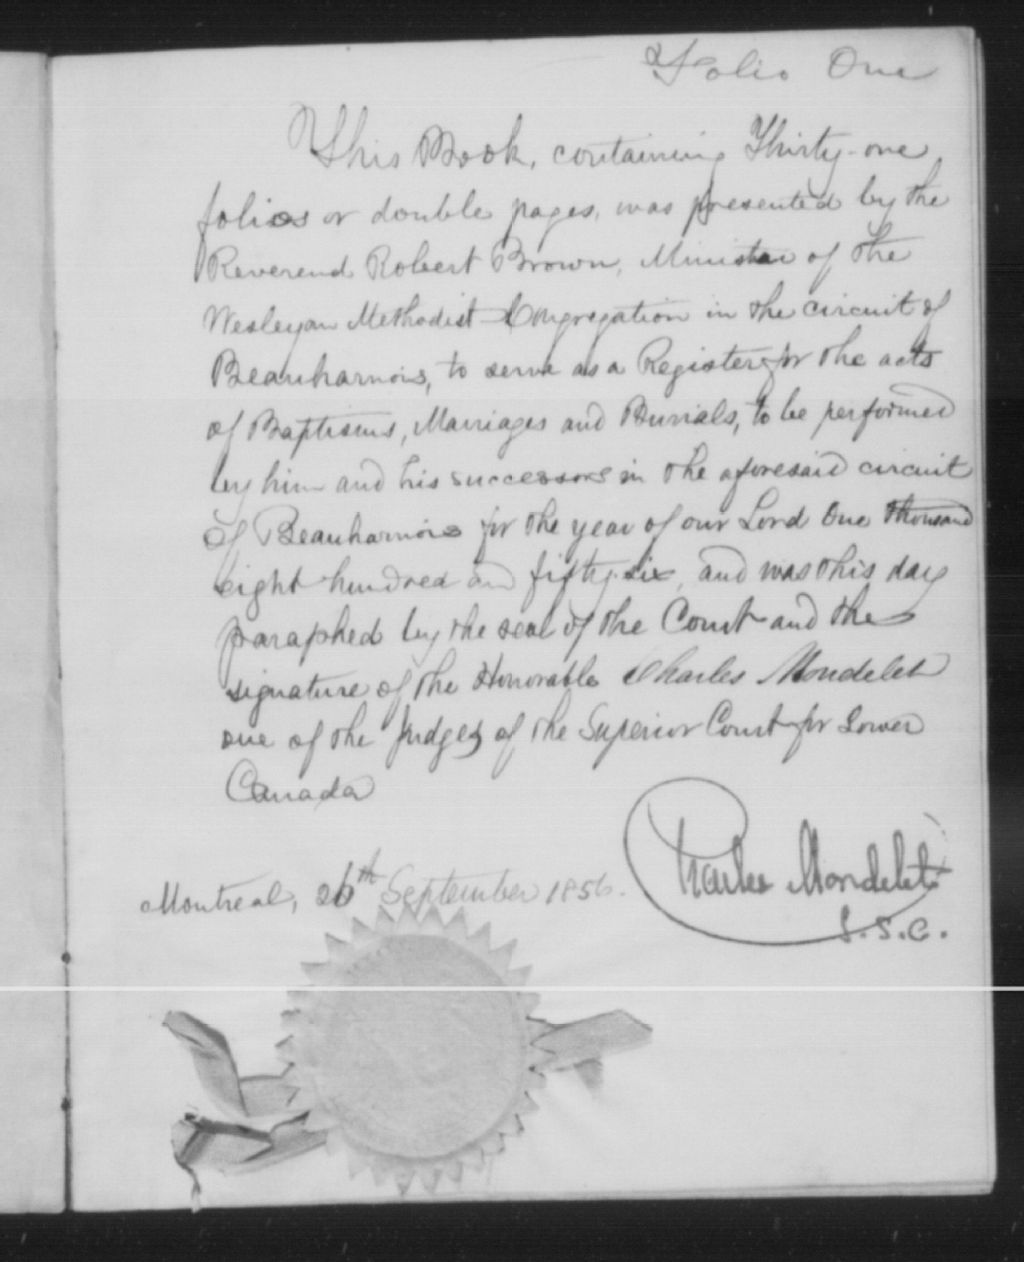 Folio One
This Book, containing Thirty-one
folios or double pages, was presented by the
Reverend Robert Brown, Minister of the
Wesleyan Methodist Congregation in the circuit of
Beauharnois, to serve as a Register for the acts
of Baptisms, Marriages and Burials, to be performed
by him and his successors in the aforesaid circuit
of Beauharnois for the year of our Lord One thousand
eight hundred an fifty-six, and was this day
paraphed by the seal of the Court and the
signature of the Honorable Charles Mondelet
one of the Judges of the Superior Court for Lower
Canada
Charles Mondelet
J.S.C.
Montreal, 26th September 1856.